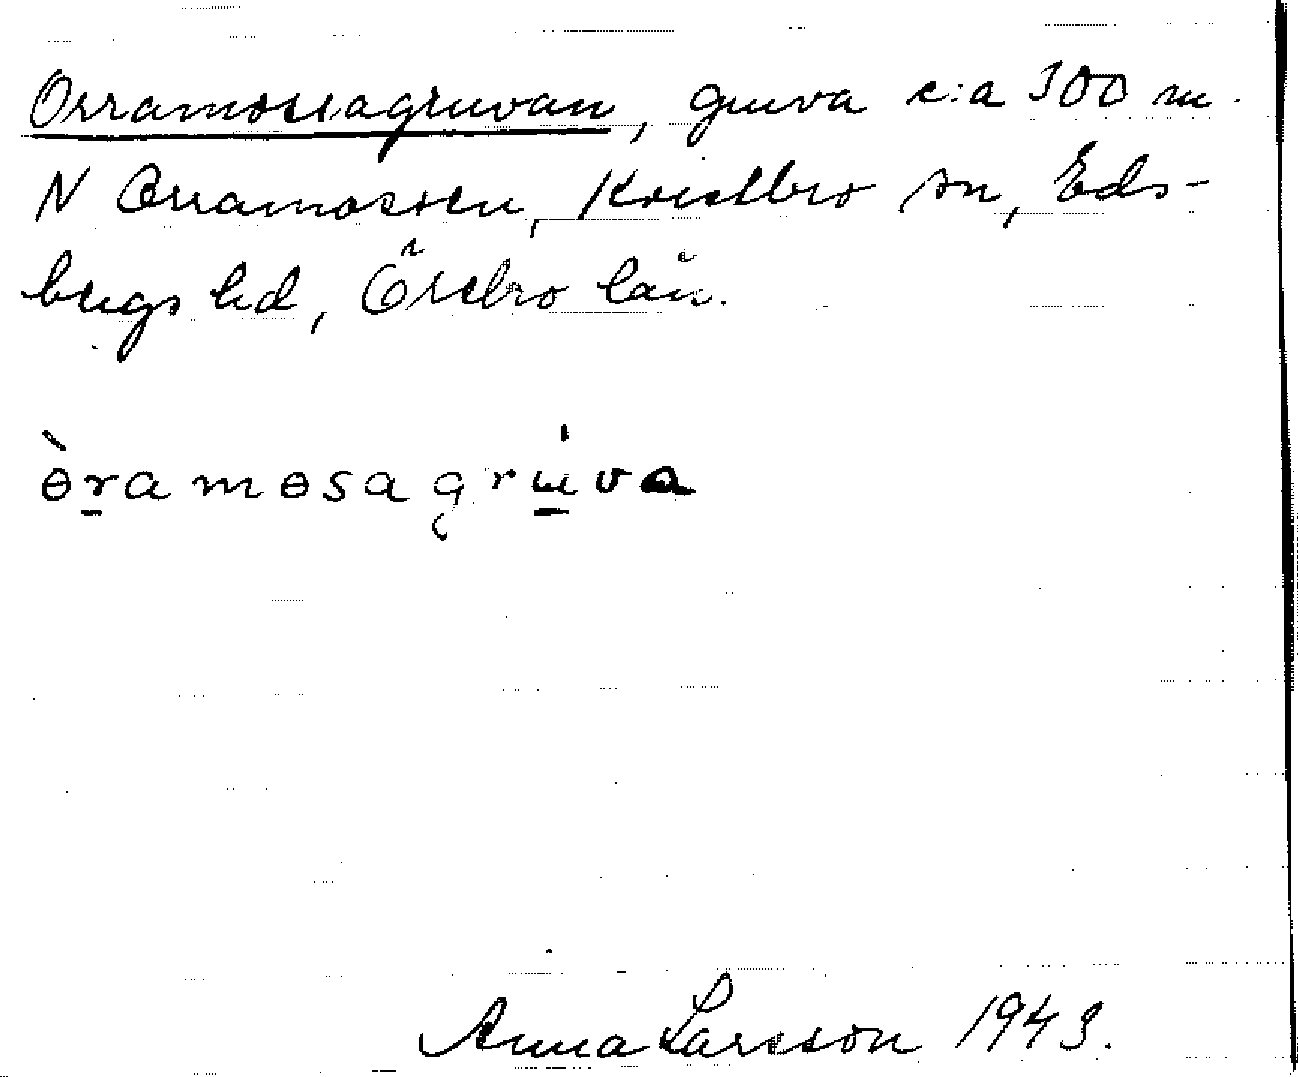 Orramossagruvan, gruva c:a 300 m.
N Orramossen, Kvistbro sn, Eds-
bergs hd, Örebro län.
ɵ̀ramɵsagru̇va
Anna Larsson 1943.